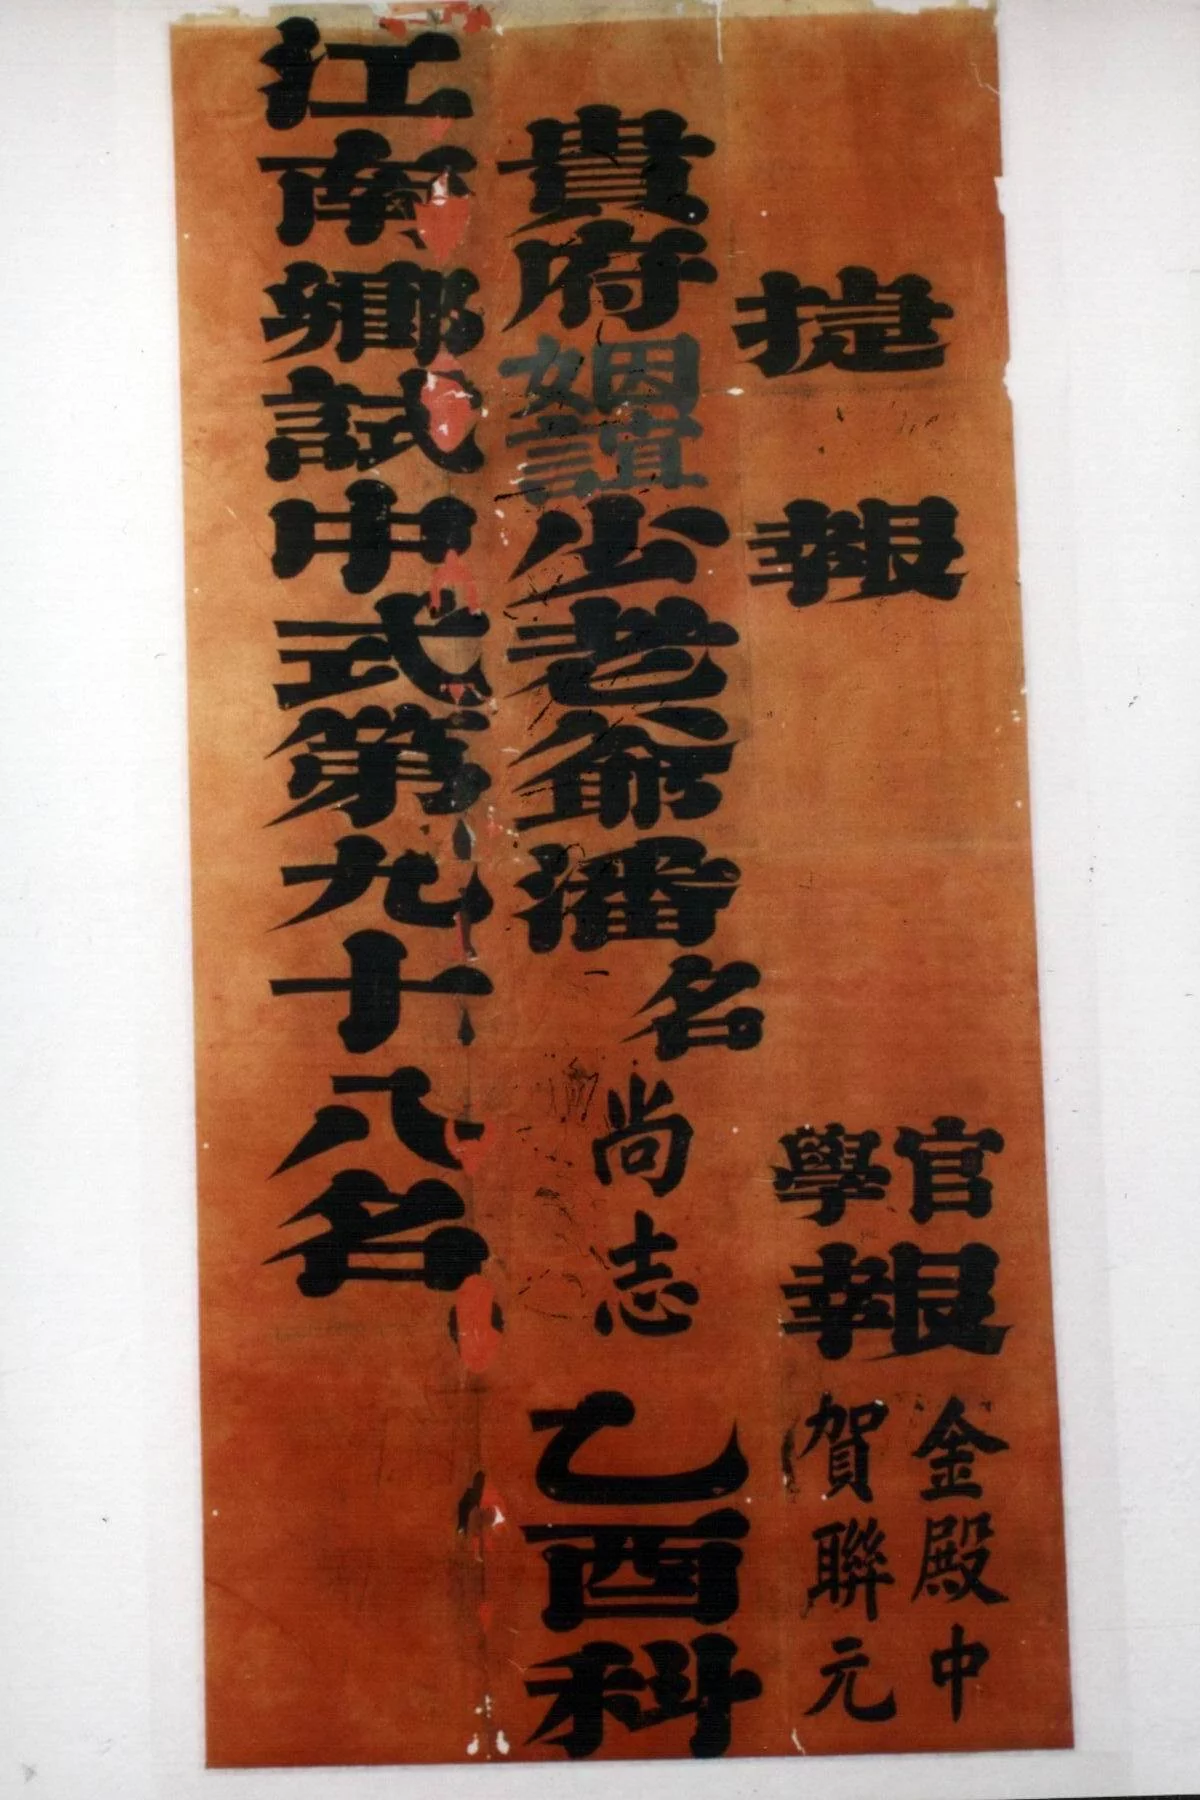 捷報
貴府姻誼少老爺潘名尚志乙酉科
江南鄉試中式第九十八名
官學報
金殿中
賀聯元